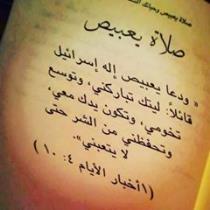 صلاة يعبيص وحياتك
صلاة يعبيص
« ودعا يعبيص إله إسرائيل
قائلاً: ليتك تباركني، وتوسع
تخومي، وتكون يدك معي،
وتحفظني من الشر حتى
لا يتعبني».
(١ أخبار الأيام ٤: ١٠)